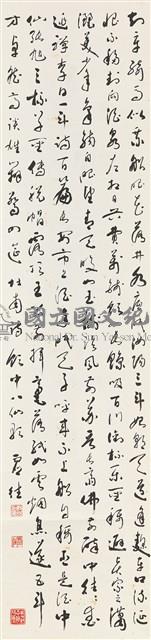 知章騎馬似乘船眼花落井水底眠汝陽三斗始朝天道逢麴車口流涎
恨不移封向酒泉左相日興費萬錢飲如長鯨吸百川銜杯樂聖稱避賢宗之瀟
灑美少年舉觴白眼望青天皎如玉樹臨風前蘇晉長齋繡佛前醉中往往愛
逃禪李白一斗詩百篇長安市上酒家眠天子呼來不上船自稱臣是酒中
仙張旭三杯草聖傳脫帽露頂王公前揮毫落紙如雲煙焦遂五斗
方卓然高談雄辯驚四筵 杜甫詩飲中八仙歌
國立國父紀念館